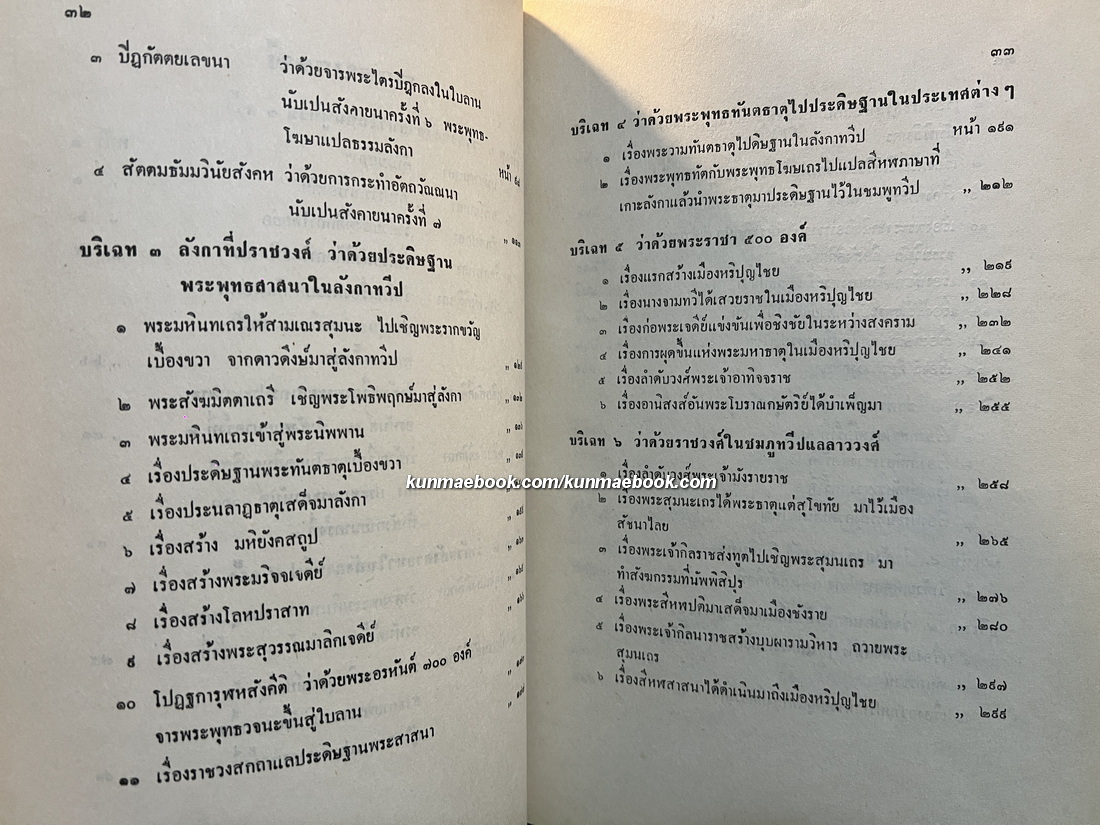 ๓๒
๓ บีฎกัตตยเลขนา ว่าด้วยจารพระไตรบีฎกลงในใบลาน
นับเปนสังคายนาครั้งที่ ๖ พระพุทธ-
โฆษาแปลธรรมลังกา หน้า
๔ สัตตมธัมมวินัยสังคห ว่าด้วยการกระทำอัตถวัณณนา
นับเปนสังคายนาครั้งที่ ๗ ,,
บริเฉท ๓ ลังกาที่ปราชวงศ์ ว่าด้วยประดิษฐาน
พระพุทธสาสนาในลังกาทวีป
๑ พระมหินทเถรให้สามเณรสุมนะ ไปเชิญพระรากขวัญ
เบื้องขวา จากดาวดึงษ์มาสู่ลังกาทวีป ,,
๒ พระสังฆมิตตาเถรี เชิญพระโพธิพฤกษ์มาสู่ลังกา ,,
๓ พระมหินทเถรเข้าสู่พระนิพพาน ,,
๔ เรื่องประดิษฐานพระทันตธาตุเบื้องขวา ,,
๕ เรื่องประนลาฏธาตุเสด็จมาลังกา ,,
๖ เรื่องสร้าง มหิยังคสถูป ,,
๗ เรื่องสร้างพระมริจจเจดีย์ ,,
๘ เรื่องสร้างโลหปราสาท ,,
๙ เรื่องสร้างพระสุวรรณมาลิกเจดีย์ ,,
๑๐ โปฏฐการุฬหสังคีติ ว่าด้วยพระอรหันต์ ๗๐๐ องค์
จารพระพุทธวจนะขึ้นสู่ใบลาน ,,
๑๑ เรื่องราชวงสกถาแลประดิษฐานพระสาสนา
๓๓
บริเฉท ๔ ว่าด้วยพระพุทธทันตธาตุไปประดิษฐานในประเทศต่าง ๆ
๑ เรื่องพระวามทันตธาตุไปดิษฐานในลังกาทวีป หน้า ๑๙๑
๒ เรื่องพระพุทธทัตกับพระพุทธโฆษเถรไปแปลสีหฬภาษาที่
เกาะลังกาแล้วนำพระธาตุมาประดิษฐานไว้ในชมพูทวีป ,, ๒๑๒
บริเฉท ๕ ว่าด้วยพระราชา ๕๐๐ องค์
๑ เรื่องแรกสร้างเมืองหริปุญไชย ,, ๒๑๙
๒ เรื่องนางจามทวีได้เสวยราชในเมืองหริปุญไชย ,, ๒๒๘
๓ เรื่องก่อพระเจดีย์แข่งขันเพื่อชิงชัยในระหว่างสงคราม ,, ๒๓๒
๔ เรื่องการผุดขึ้นแห่งพระมหาธาตุในเมืองหริปุญไชย ,, ๒๔๑
๕ เรื่องลำดับวงศ์พระเจ้าอาทิจจราช ,, ๒๕๒
๖ เรื่องอานิสงส์อันพระโบราณกษัตริย์ได้บำเพ็ญมา ,, ๒๕๕
บริเฉท ๖ ว่าด้วยราชวงศ์ในชมภูทวีปแลลาววงศ์
๑ เรื่องลำดับวงศ์พระเจ้ามังรายราช ,, ๒๕๘
kunmaebook.com/kunmaebook.com
๒ เรื่องพระสุมนะเถรได้พระธาตุแต่สุโขทัย มาไว้เมือง
สัชนาไลย ,, ๒๖๕
๓ เรื่องพระเจ้ากิลราชส่งทูตไปเชิญพระสุมนเถร มา
ทำสังฆกรรมที่นัพพิสิปุร ,, ๒๗๖
๔ เรื่องพระสีหฬปติมาเสด็จมาเมืองชังราย ,, ๒๘๐
๕ เรื่องพระเจ้ากิลนาราชสร้างบุบผารามวิหาร ถวายพระ
สุมนเถร ,, ๒๙๗
๖ เรื่องสีหฬสาสนาได้ดำเนินมาถึงเมืองหริปุญไชย ,, ๒๙๙